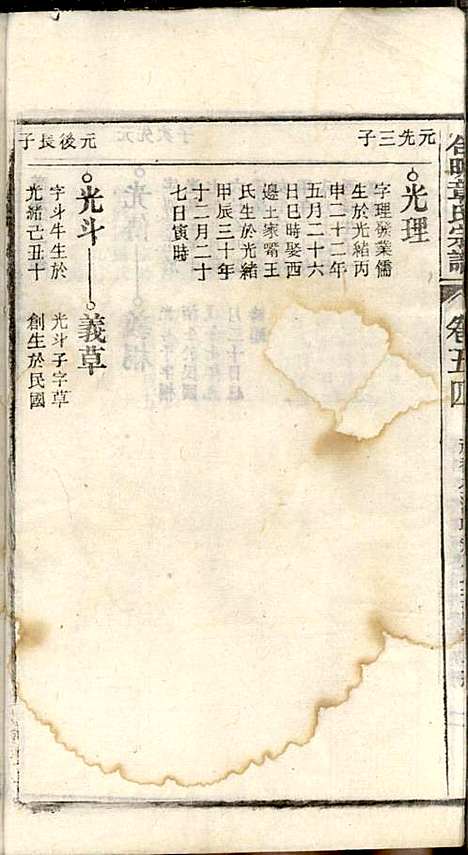 章氏宗譜
卷五四
元先三子
光理
字理
業儒
生於光緒丙
申二十二年
五月二十六
日巳時娶西
邊王家嘴王
氏生於光緒
甲辰三十年
十二月二十
七日寅時
元後長子
光斗
字斗牛生於
光緒己丑十
義草
光斗子字草
創生於民國